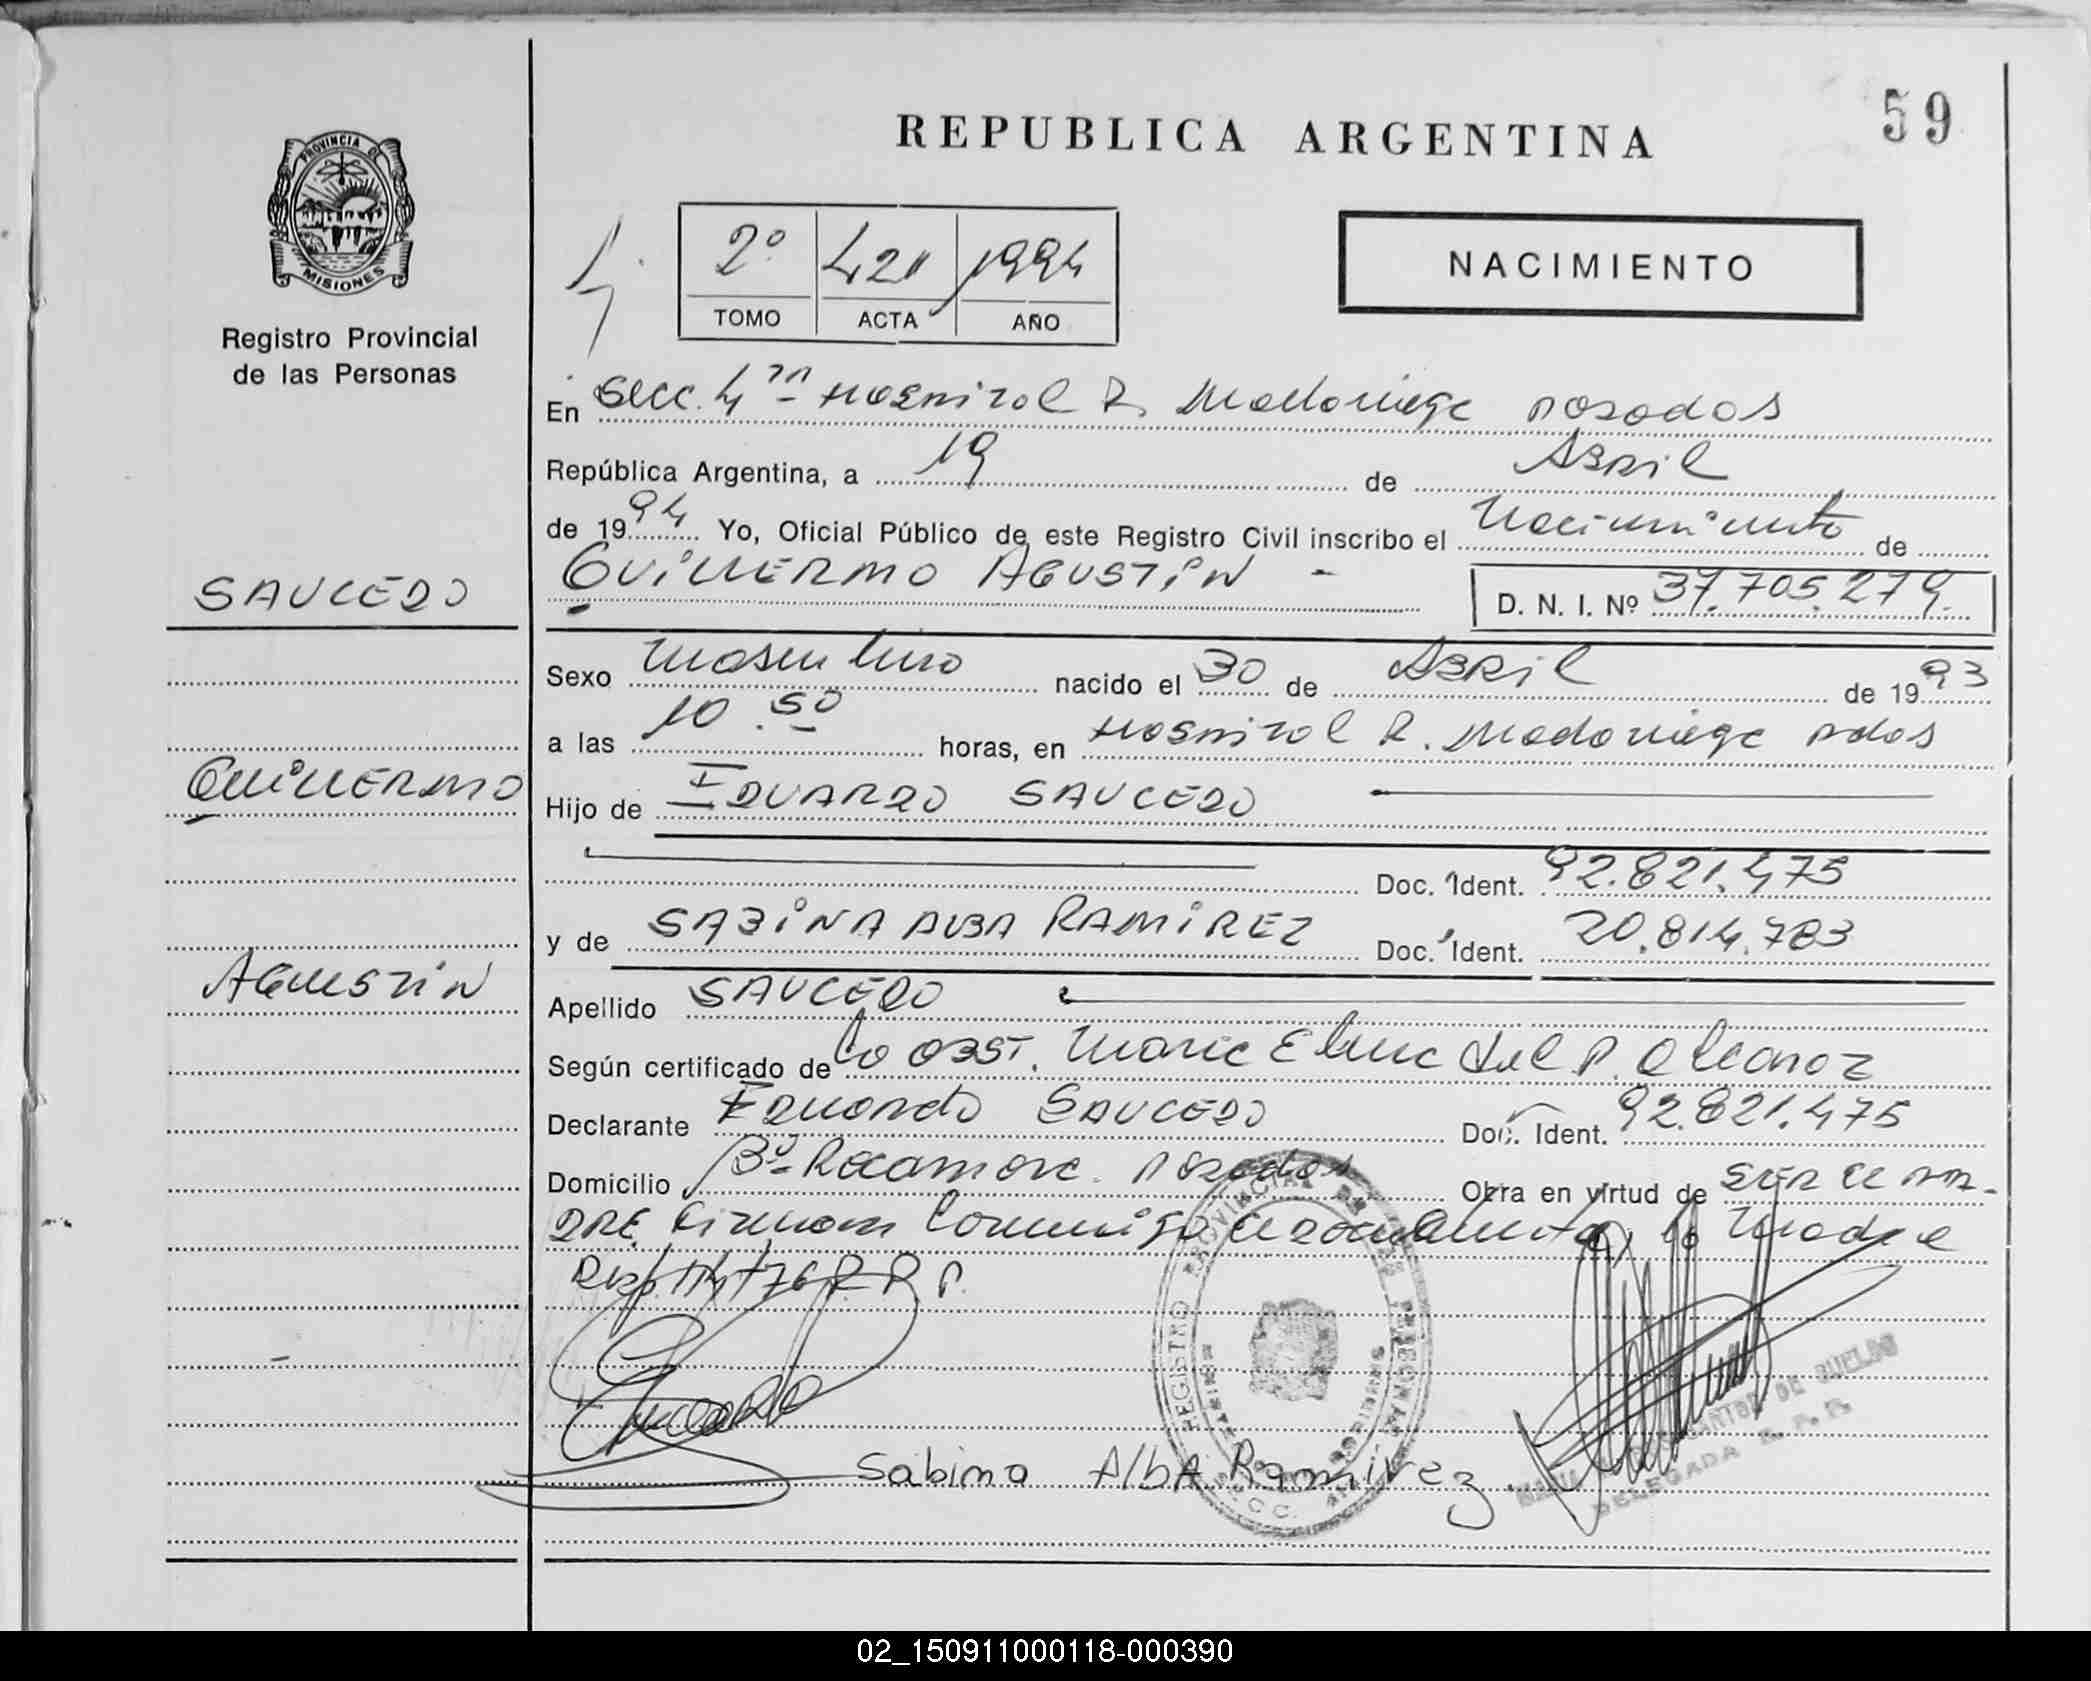 59
REPUBLICA ARGENTINA
PROVINCIA DE
MISIONES
Registro Provincial
de las Personas
2º 421 1994
TOMO ACTA AÑO
NACIMIENTO
En Secc. 4ta Hospital R. Madariaga Posadas
República Argentina, a 19 de Abril
de 1994 Yo, Oficial Público de este Registro Civil inscribo el Nacimiento de
SAUCEDO
GUILLERMO AGUSTIN -
D. N. I. Nº 37.705.279
Sexo Masculino nacido el 30 de ABRIL de 1993
a las 10.50 horas, en Hospital R. Madariaga Pdas
GUILLERMO
Hijo de EDUARDO SAUCEDO
Doc. Ident. 92.821.475
y de SABINA ALBA RAMIREZ Doc. Ident. 20.814.783
AGUSTIN
Apellido SAUCEDO
Según certificado de la OBST. Maria Elena del P. Alcaraz
Declarante Eduardo SAUCEDO Doc. Ident. 92.821.475
Domicilio Bº Rocamora. Posadas Obra en virtud de SER EL PA-
DRE. Firman Conmigo el declarante, la Madre
Sabina AlbA Ramirez
REGISTRO PROVINCIAL DE LAS PERSONAS
MISIONES
DELEGADA R. P. P.
02_150911000118-000390